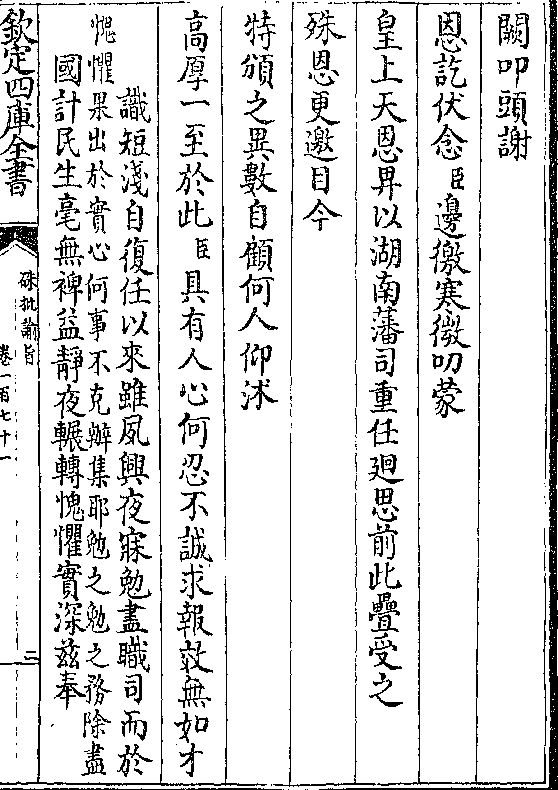 闕叩頭謝
恩訖伏念臣邊徼寒微叨蒙
皇上天恩畀以湖南藩司重任廻思前此疊受之
殊恩更邀目今
特頒之異數自顧何人仰沐
高厚一至於此臣具有人心何忍不誠求報效無如才
識短淺自復任以來雖夙興夜寐勉盡職司而於
愧懼果出於實心何事不克辦集耶勉之勉之務除盡
國計民生毫無裨益靜夜輾轉愧懼實深茲奉
欽定四庫全書
硃批諭旨
卷一百七十一
二